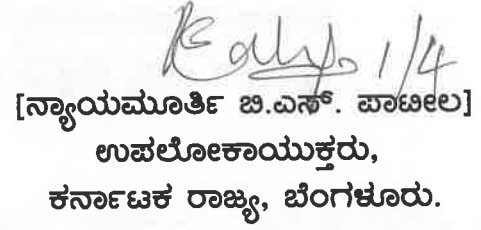 1/4
[ನ್ಯಾಯಮೂರ್ತಿ ಬಿ.ಎಸ್. ಪಾಟೀಲ]
ಉಪಲೋಕಾಯುಕ್ತರು,
ಕರ್ನಾಟಕ ರಾಜ್ಯ, ಬೆಂಗಳೂರು.